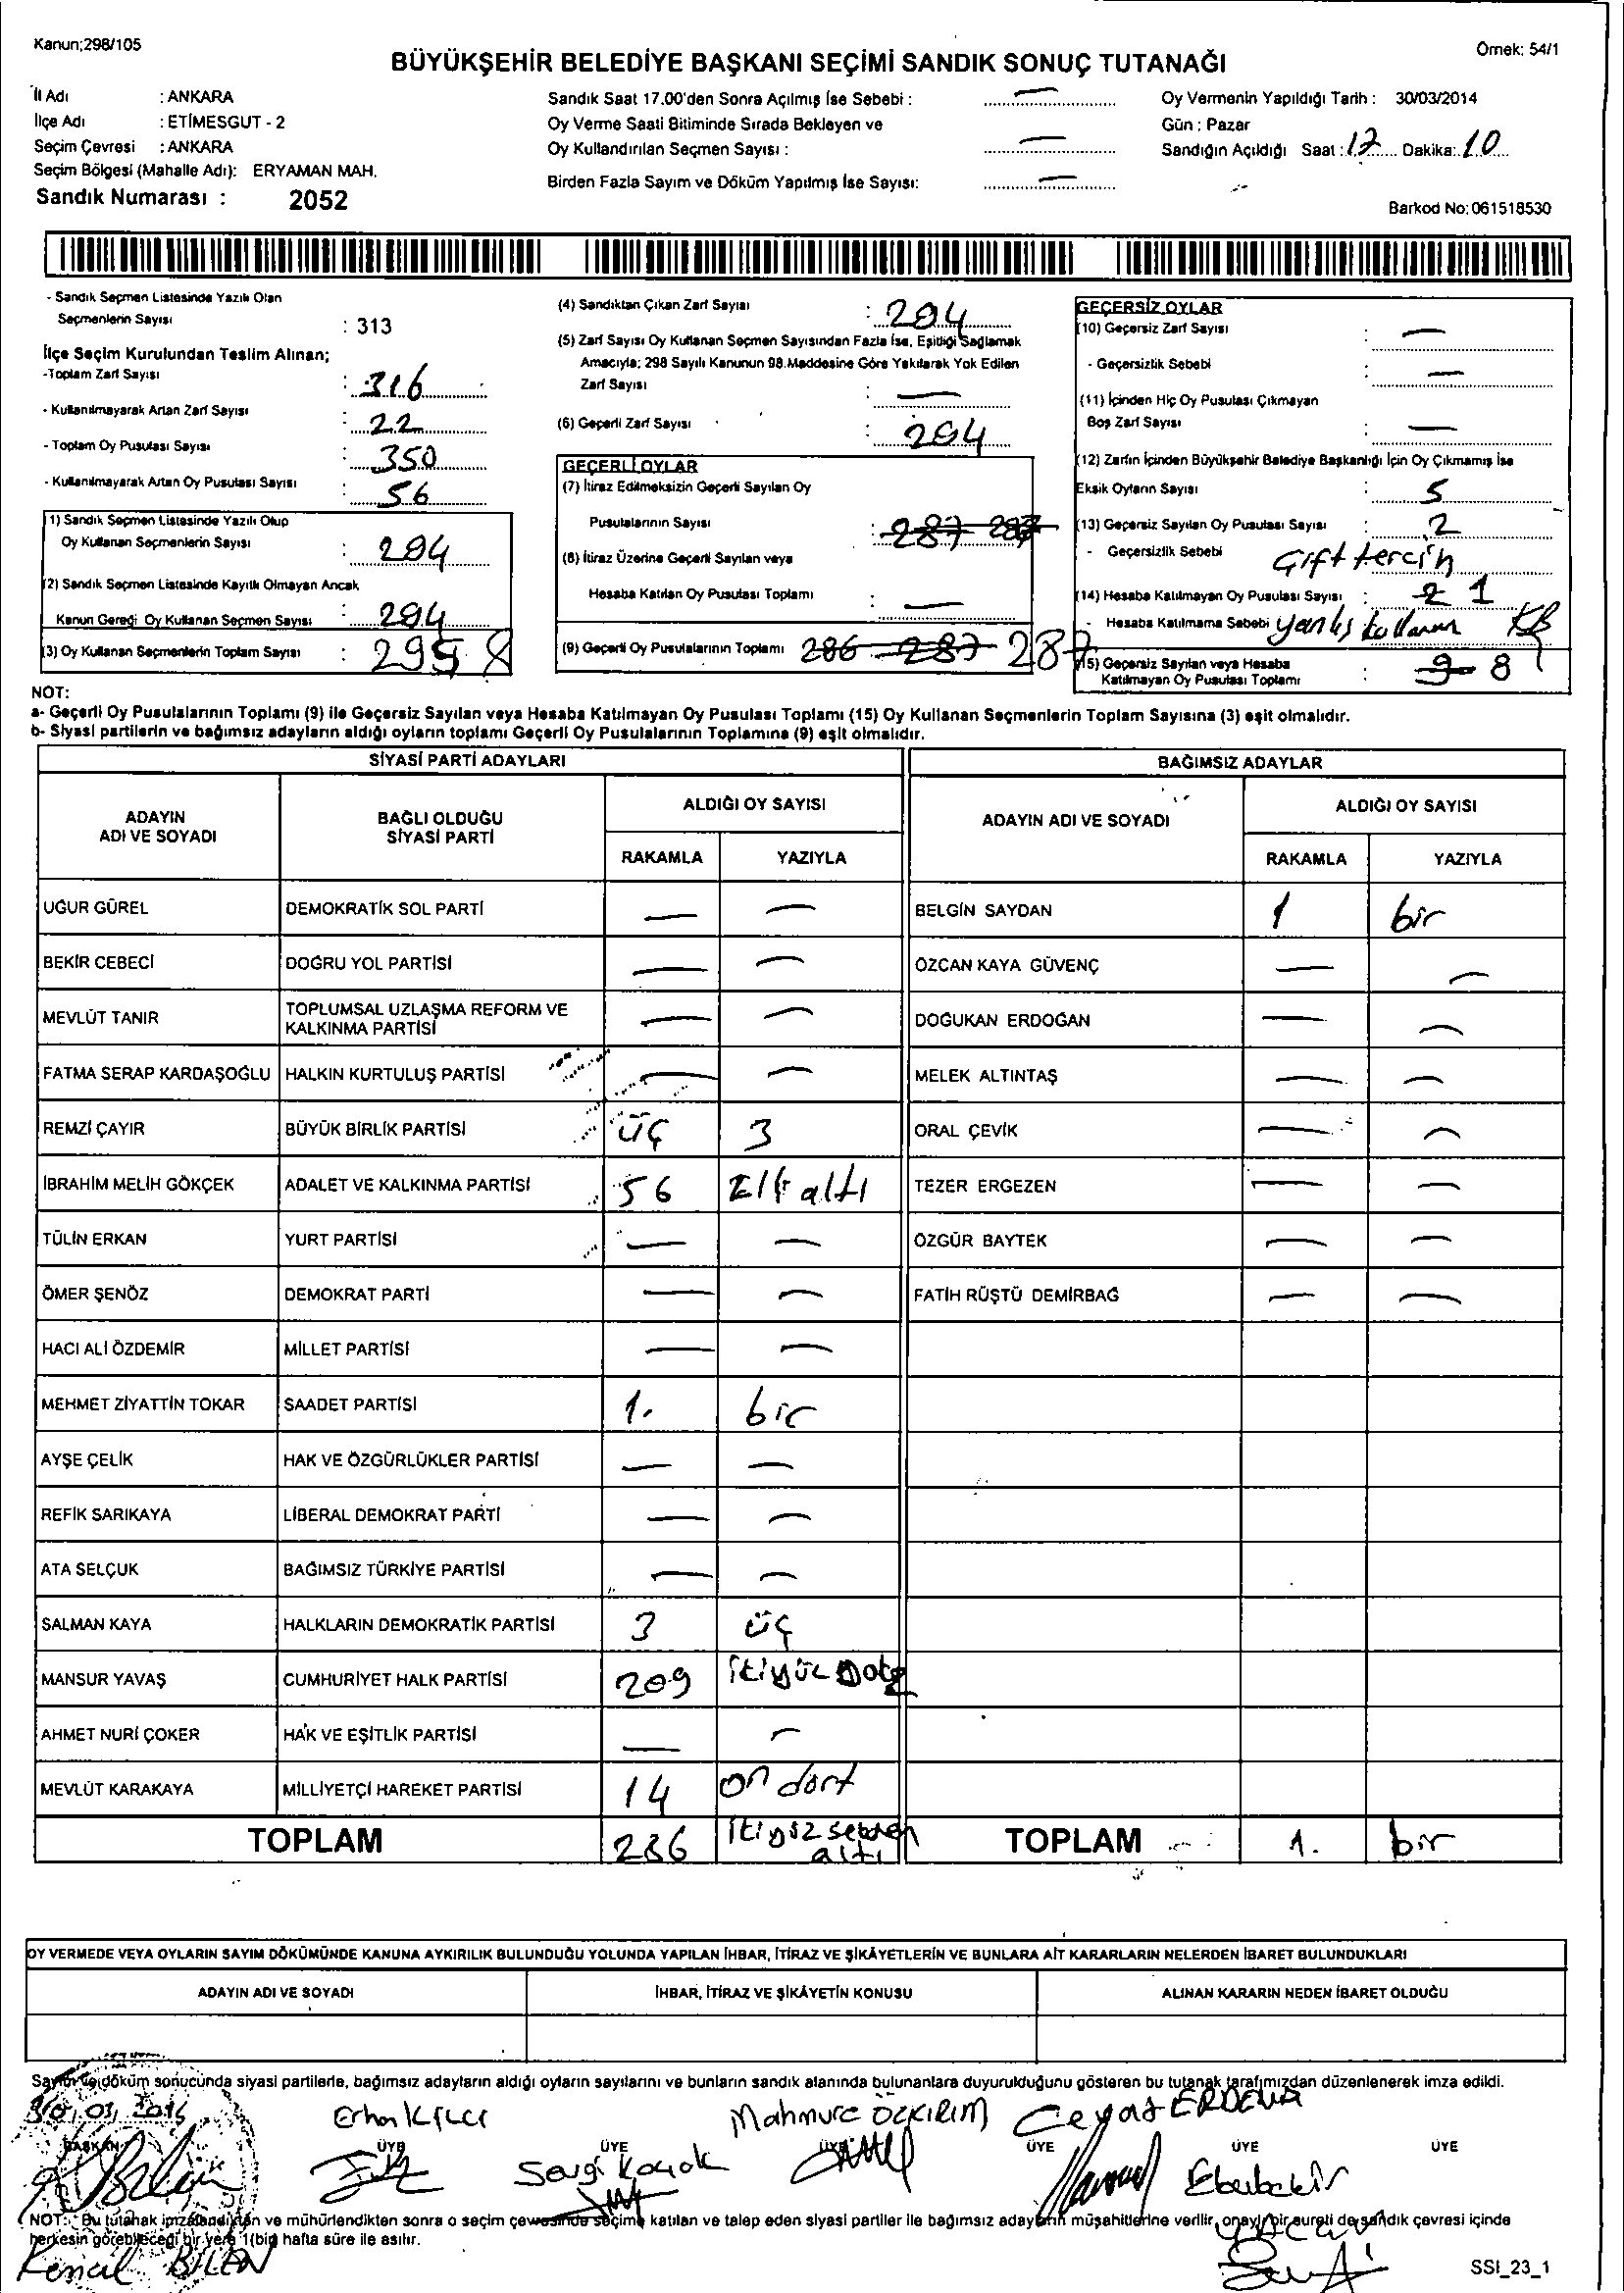 Kanun;298/105
Örnek: 54/1
BÜYÜKŞEHİR BELEDİYE BAŞKANI SEÇİMİ SANDIK SONUÇ TUTANAĞI
İl Adı : ANKARA
İlçe Adı : ETİMESGUT - 2
Seçim Çevresi : ANKARA
Seçim Bölgesi (Mahalle Adı): ERYAMAN MAH.
Sandık Numarası : 2052
Sandık Saat 17.00'den Sonra Açılmış İse Sebebi : —
Oy Verme Saati Bitiminde Sırada Bekleyen ve
Oy Kullandırılan Seçmen Sayısı : —
Birden Fazla Sayım ve Döküm Yapılmış İse Sayısı: —
Oy Vermenin Yapıldığı Tarih : 30/03/2014
Gün : Pazar
Sandığın Açıldığı Saat : 17 Dakika: 10
Barkod No: 061518530
- Sandık Seçmen Listesinde Yazılı Olan
Seçmenlerin Sayısı : 313
İlçe Seçim Kurulundan Teslim Alınan;
-Toplam Zarf Sayısı : 316
- Kullanılmayarak Artan Zarf Sayısı : 22
- Toplam Oy Pusulası Sayısı : 350
- Kullanılmayarak Artan Oy Pusulası Sayısı : 56
(1) Sandık Seçmen Listesinde Yazılı Olup
Oy Kullanan Seçmenlerin Sayısı : 294
(2) Sandık Seçmen Listesinde Kayıtlı Olmayan Ancak
Kanun Gereği Oy Kullanan Seçmen Sayısı : 294
(3) Oy Kullanan Seçmenlerin Toplam Sayısı : 295
(4) Sandıktan Çıkan Zarf Sayısı : 294
(5) Zarf Sayısı Oy Kullanan Seçmen Sayısından Fazla İse, Eşitliği Sağlamak
Amacıyla; 298 Sayılı Kanunun 98.Maddesine Göre Yakılarak Yok Edilen
Zarf Sayısı : —
(6) Geçerli Zarf Sayısı : 294
GEÇERLİ OYLAR
(7) İtiraz Edilmeksizin Geçerli Sayılan Oy
Pusulalarının Sayısı : 287 287
(8) İtiraz Üzerine Geçerli Sayılan veya
Hesaba Katılan Oy Pusulası Toplamı : —
(9) Geçerli Oy Pusulalarının Toplamı 286 287 287
GEÇERSİZ OYLAR
(10) Geçersiz Zarf Sayısı : —
- Geçersizlik Sebebi : —
(11) İçinden Hiç Oy Pusulası Çıkmayan
Boş Zarf Sayısı : —
(12) Zarfın İçinden Büyükşehir Belediye Başkanlığı İçin Oy Çıkmamış İse
Eksik Oyların Sayısı : 5
(13) Geçersiz Sayılan Oy Pusulası Sayısı : 2
- Geçersizlik Sebebi Çift tercih
(14) Hesaba Katılmayan Oy Pusulası Sayısı : 2 1
- Hesaba Katılmama Sebebi yanlış kullanım
(15) Geçersiz Sayılan veya Hesaba
Katılmayan Oy Pusulası Toplamı : 9 8
NOT:
a- Geçerli Oy Pusulalarının Toplamı (9) ile Geçersiz Sayılan veya Hesaba Katılmayan Oy Pusulası Toplamı (15) Oy Kullanan Seçmenlerin Toplam Sayısına (3) eşit olmalıdır.
b- Siyasi partilerin ve bağımsız adayların aldığı oyların toplamı Geçerli Oy Pusulalarının Toplamına (9) eşit olmalıdır.
SİYASİ PARTİ ADAYLARI
BAĞIMSIZ ADAYLAR
ADAYIN ADI VE SOYADI
BAĞLI OLDUĞU SİYASİ PARTİ
ALDIĞI OY SAYISI
RAKAMLA YAZIYLA
ADAYIN ADI VE SOYADI
ALDIĞI OY SAYISI
RAKAMLA YAZIYLA
UĞUR GÜREL DEMOKRATİK SOL PARTİ — — BELGİN SAYDAN 1 bir
BEKİR CEBECİ DOĞRU YOL PARTİSİ — — ÖZCAN KAYA GÜVENÇ — —
MEVLÜT TANIR TOPLUMSAL UZLAŞMA REFORM VE KALKINMA PARTİSİ — — DOĞUKAN ERDOĞAN — —
FATMA SERAP KARDAŞOĞLU HALKIN KURTULUŞ PARTİSİ — — MELEK ALTINTAŞ — —
REMZİ ÇAYIR BÜYÜK BİRLİK PARTİSİ üç 3 ORAL ÇEVİK — —
İBRAHİM MELİH GÖKÇEK ADALET VE KALKINMA PARTİSİ 56 Elli altı TEZER ERGEZEN — —
TÜLİN ERKAN YURT PARTİSİ — — ÖZGÜR BAYTEK — —
ÖMER ŞENÖZ DEMOKRAT PARTİ — — FATİH RÜŞTÜ DEMİRBAĞ — —
HACI ALİ ÖZDEMİR MİLLET PARTİSİ — —
MEHMET ZİYATTİN TOKAR SAADET PARTİSİ 1. bir
AYŞE ÇELİK HAK VE ÖZGÜRLÜKLER PARTİSİ — —
REFİK SARIKAYA LİBERAL DEMOKRAT PARTİ — —
ATA SELÇUK BAĞIMSIZ TÜRKİYE PARTİSİ — —
SALMAN KAYA HALKLARIN DEMOKRATİK PARTİSİ 3 üç
MANSUR YAVAŞ CUMHURİYET HALK PARTİSİ 209 ikiyüz Dokuz
AHMET NURİ ÇOKER HAK VE EŞİTLİK PARTİSİ — —
MEVLÜT KARAKAYA MİLLİYETÇİ HAREKET PARTİSİ 14 on dört
TOPLAM 286 ikiyüz seksen altı TOPLAM 1. bir
OY VERMEDE VEYA OYLARIN SAYIM DÖKÜMÜNDE KANUNA AYKIRILIK BULUNDUĞU YOLUNDA YAPILAN İHBAR, İTİRAZ VE ŞİKÂYETLERİN VE BUNLARA AİT KARARLARIN NELERDEN İBARET BULUNDUKLARI
ADAYIN ADI VE SOYADI İHBAR, İTİRAZ VE ŞİKÂYETİN KONUSU ALINAN KARARIN NEDEN İBARET OLDUĞU
Sayım ve döküm sonucunda siyasi partilerle, bağımsız adayların aldığı oyların sayılarını ve bunların sandık alanında bulunanlara duyurulduğunu gösteren bu tutanak tarafımızdan düzenlenerek imza edildi.
30.03.2014 Erhan Kılıcı Mahmure ÖZKIRIM
BAŞKAN ÜYE ÜYE ÜYE ÜYE ÜYE ÜYE
Sevgi Koçak
NOT: Bu tutanak imzalandıktan ve mühürlendikten sonra o seçim çevresinde seçime katılan ve talep eden siyasi partiler ile bağımsız adayların müşahitlerine verilir, onaylı bir sureti de sandık çevresi içinde
herkesin görebileceği bir yere 1(bir) hafta süre ile asılır.
Kemal BİLEN
SSI_23_1